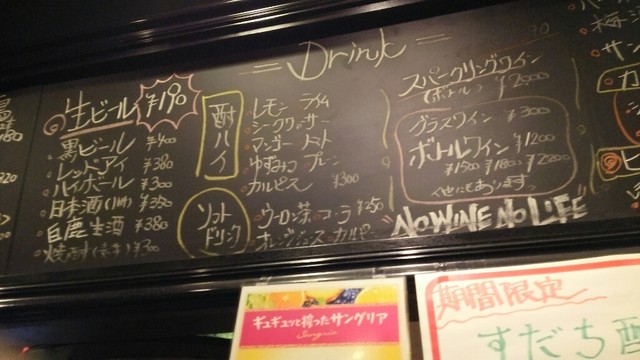 Drink
生ビール ¥190
黒ビール ¥400
レッドアイ ¥380
ハイボール ¥300
日本酒(1合) ¥350
白鹿生酒 ¥380
¥300
酎ハイ
レモン ライム
マンゴー トマト
ゆずみつ プレーン
カルピス ¥300
ソフトドリンク
ウーロン茶 コーラ ¥250
オレンジジュース カルピス
スパークリングワイン
(ボトル) ¥2000
グラスワイン ¥300
ボトルワイン ¥1200
¥1500 ¥1800 ¥2200
(他にもあります)
"NO WINE NO LIFE"
ギュギュッと搾ったサングリア
Sangria
期間限定
すだち酎